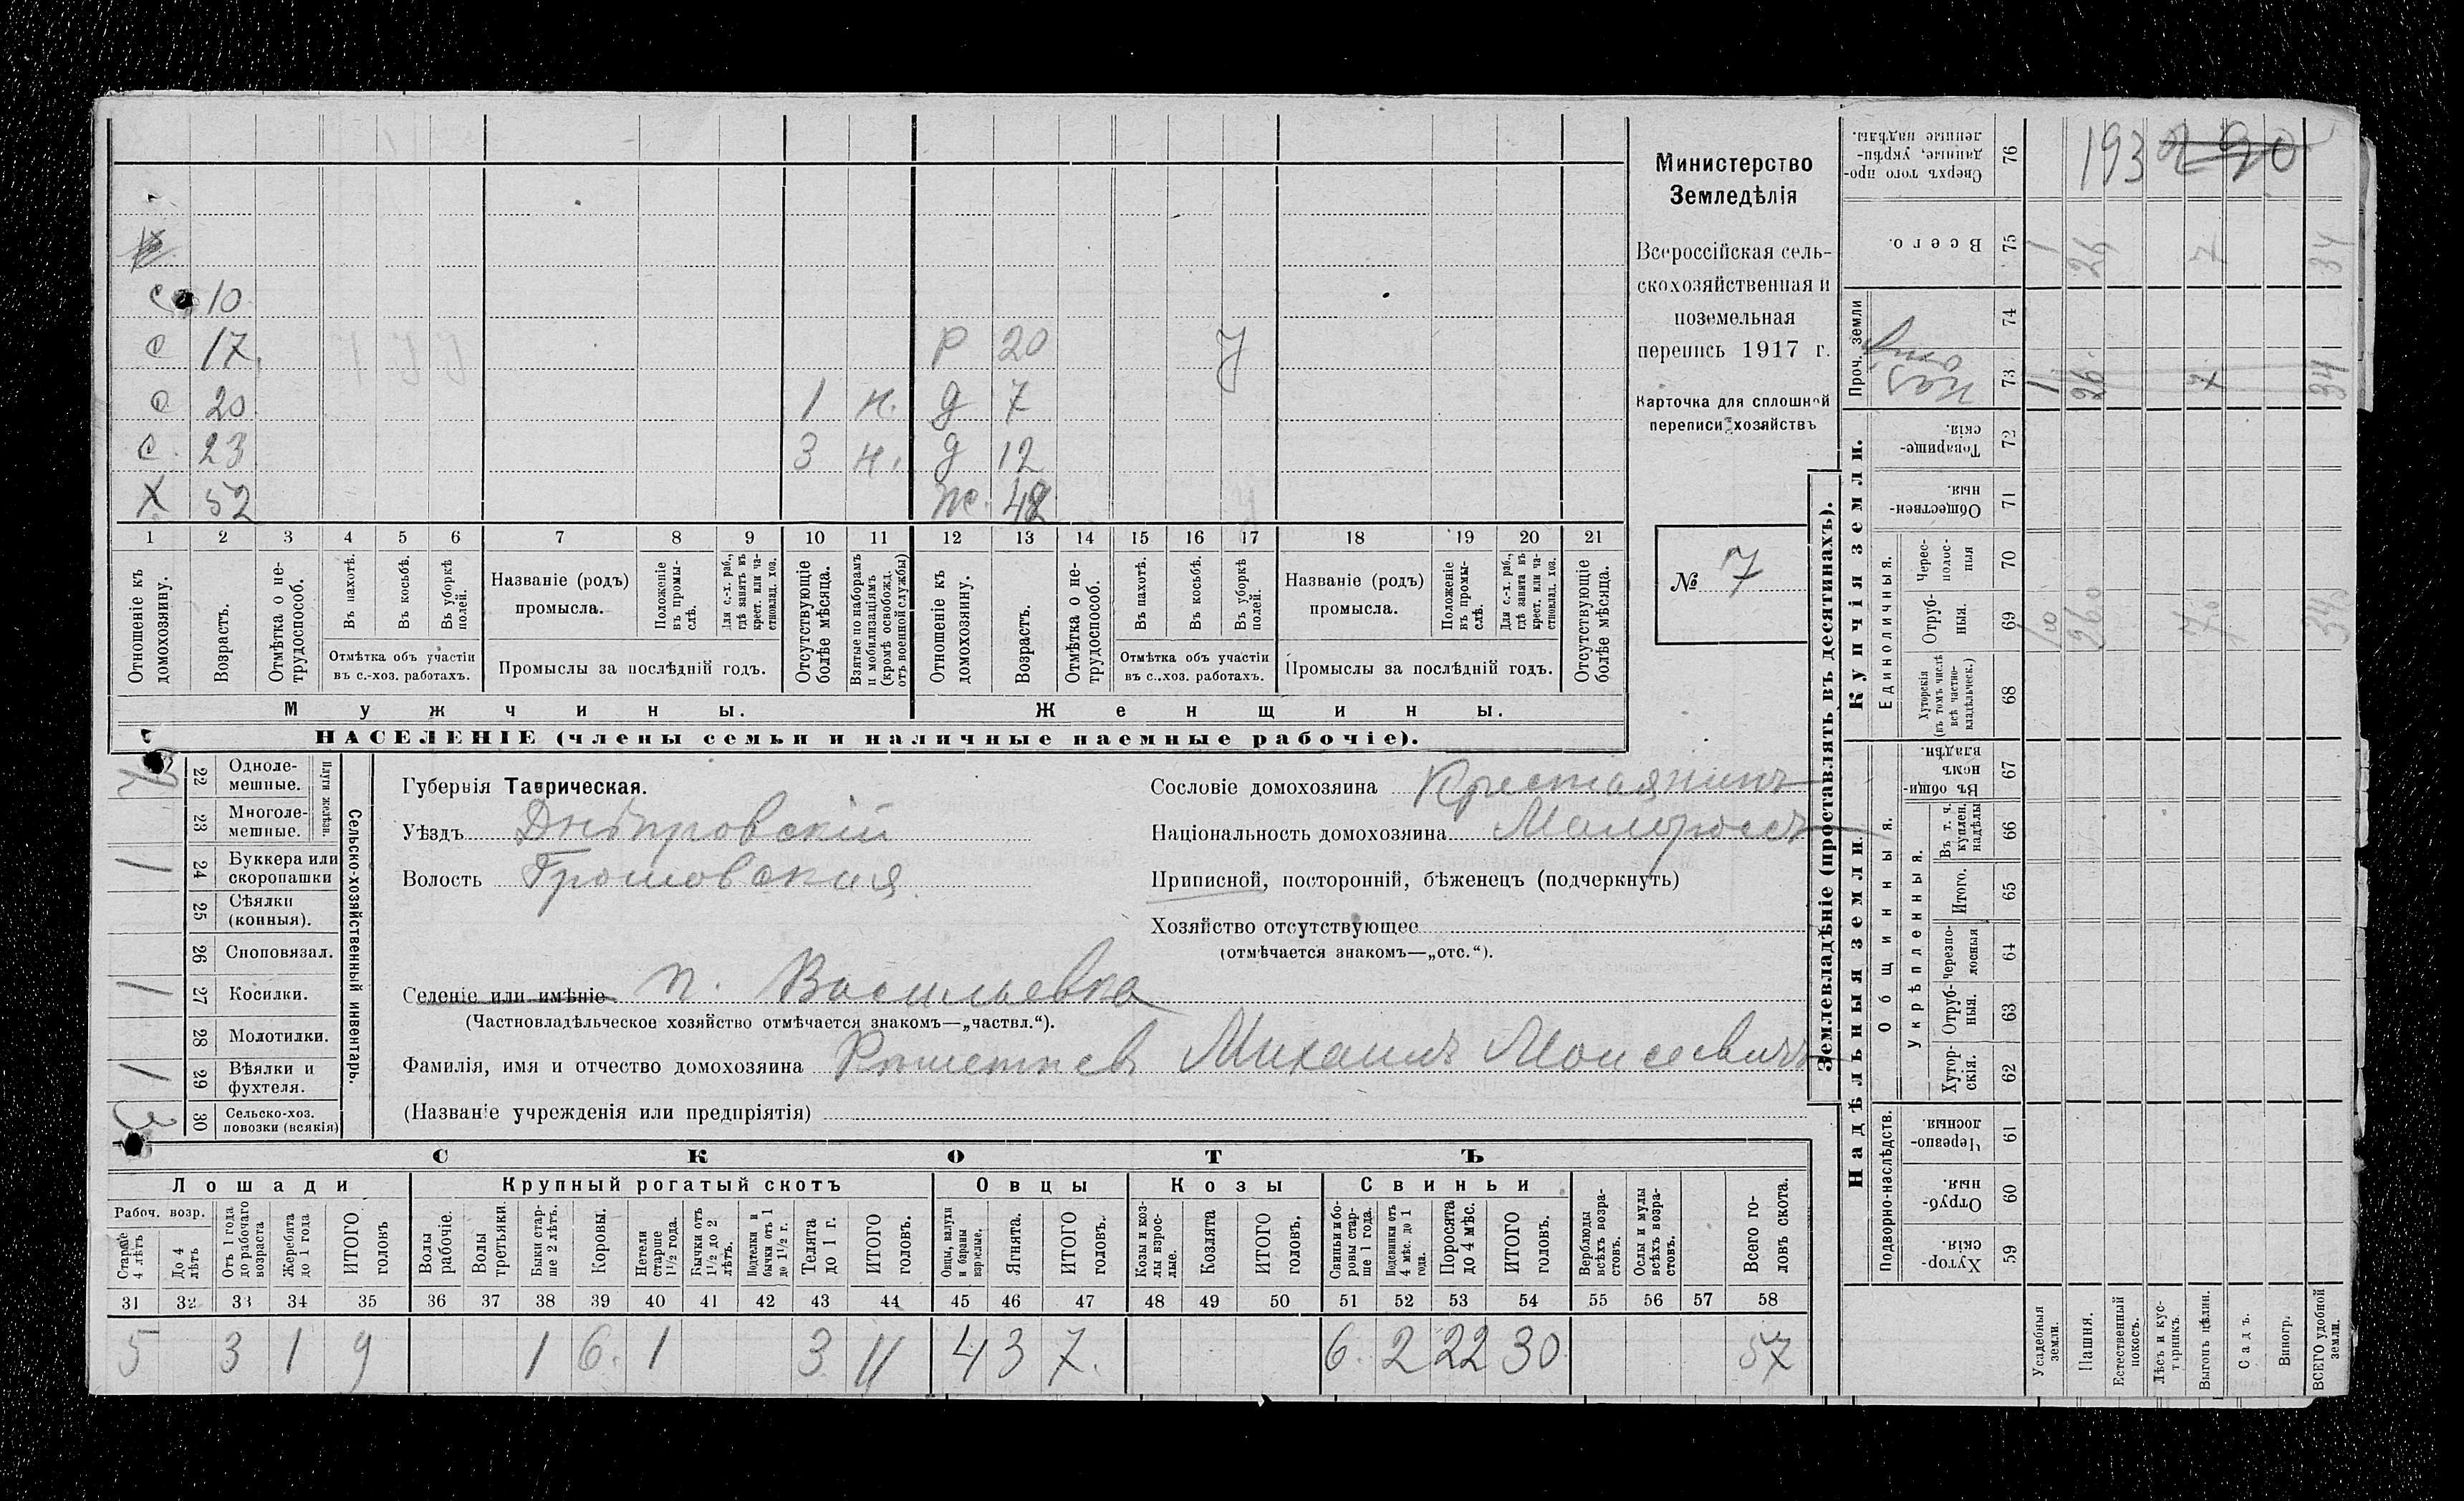 с 10
с 17 р 20 У
с 20 1 н. д 7
с. 23 3 н. д 12
Х 52 ж. 48
1 2 3 4 5 6 7 8 9 10 11 12 13 14 15 16 17 18 19 20 21
Отношеніе къ домохозяину.
Возрастъ.
Отмѣтка о не-трудоспособ.
Въ пахотѣ.
Въ косьбѣ.
Въ уборкѣ полей.
Отмѣтка объ участіи
въ с.-хоз. работахъ.
Названіе (родъ)
промысла.
Положеніе въ промы-слѣ.
Для с.-х. раб., гдѣ занятъ въ крест. или ча-стновлад. хоз.
Промыслы за послѣдній годъ.
Отсутствующіе болѣе мѣсяца.
Взятые по наборамъ и мобилизаціямъ (кромѣ освобожд. отъ военной службы)
Отношеніе къ домохозяину.
Возрастъ.
Отмѣтка о не-трудоспособ.
Въ пахотѣ.
Въ косьбѣ.
Въ уборкѣ полей.
Отмѣтка объ участіи
въ с..хоз. работахъ.
Названіе (родъ)
промысла.
Положеніе въ промы-слѣ.
Для с.-х. раб., гдѣ занята въ крест. или ча-стновлад. хоз.
Промыслы за послѣдній годъ.
Отсутствующіе болѣе мѣсяца.
Мужчины. Женщины.
НАСЕЛЕНІЕ (члены семьи и наличные наемные рабочіе).
Министерство
Земледѣлія
Всероссійская сель-
скохозяйственная и
поземельная
перепись 1917 г.
Карточка для сплошной
переписи хозяйствъ
№ 7
Сельско-хозяйственный инвентарь.
Плуги желѣзн.
22 Одноле-
мешные.
23 Многоле-
мешные.
1 24 Буккера или
скоропашки
25 Сѣялки
(конныя).
26 Сноповязал.
1 27 Косилки.
28 Молотилки.
1 29 Вѣялки и
фухтеля.
3 30 Сельско-хоз.
повозки (всякія)
Губернія Таврическая.
Уѣздъ Днѣпровскій
Волость Громовская
Сословіе домохозяина Крестьянинъ
Національность домохозяина Малороссъ
Приписной, посторонній, бѣженецъ (подчеркнуть)
Хозяйство отсутствующее
(отмѣчается знакомъ—„отс.“).
Селеніе или имѣніе п. Васильевка
(Частновладѣльческое хозяйство отмѣчается знакомъ—„частвл.“).
Фамилія, имя и отчество домохозяина Михаилъ Моисеевичъ
(Названіе учрежденія или предпріятія)
СКОТЪ
Лошади Крупный рогатый скотъ Овцы Козы Свиньи
Рабоч. возр.
Старше 4 лѣтъ
До 4 лѣтъ
Отъ 1 года до рабочаго возраста
Жеребята до 1 года
ИТОГО головъ
Волы рабочіе.
Волы третьяки.
Быки стар-ше 2 лѣтъ.
Коровы.
Нетели старше 1½ года.
Бычки отъ 1½ до 2 лѣтъ.
Подтелки и бычки отъ 1 до 1½ г.
Телята до 1 г.
ИТОГО головъ.
Овцы, валухи и бараны взрослые.
Ягнята.
ИТОГО головъ.
Козы и коз-лы взрос-лые.
Козлята
ИТОГО головъ.
Свиньи и бо-ровы стар-ше 1 года.
Подсвинки отъ 4 мѣс. до 1 года.
Поросята до 4 мѣс.
ИТОГО головъ.
Верблюды всѣхъ возра-стовъ.
Ослы и мулы всѣхъ возра-стовъ.
Всего го-ловъ скота.
31 32 33 34 35 36 37 38 39 40 41 42 43 44 45 46 47 48 49 50 51 52 53 54 55 56 57 58
5 3 1 9 1 6. 1 3 11 4 3 7. 6. 2 22 30 57
Землевладѣніе (проставлять въ десятинахъ).
Купчія земли.
Надѣльныя земли.
Проч. земли
Единоличныя.
Общинныя.
Укрѣпленныя.
Подворно-наслѣдств.
76 Сверхъ того про-данные, укрѣп-ленные надѣлы. 193
75 Всего. 1 26 7 34
74
73 1 26 7 34
72 Товарище-скія.
71 Обществен-ныя.
70 Черес-полос-ныя
69 Отруб-ныя.
68 Хуторскія (въ томъ числѣ всѣ частно-владѣльческ.)
67 Въ общи-номъ владѣн.
66 Въ т. ч. куплен. надѣлы
65 Итого.
64 Черезпо-лосныя
63 Отруб-ныя.
62 Хутор-скія.
61 Черезпо-лосныя.
60 Отруб-ныя.
59 Хутор-скія.
Усадебныя земли.
Пашня.
Естественный покосъ.
Лѣсъ и кус-тарникъ.
Выгонъ цѣлин.
Садъ.
Виногр.
ВСЕГО удобной земли.